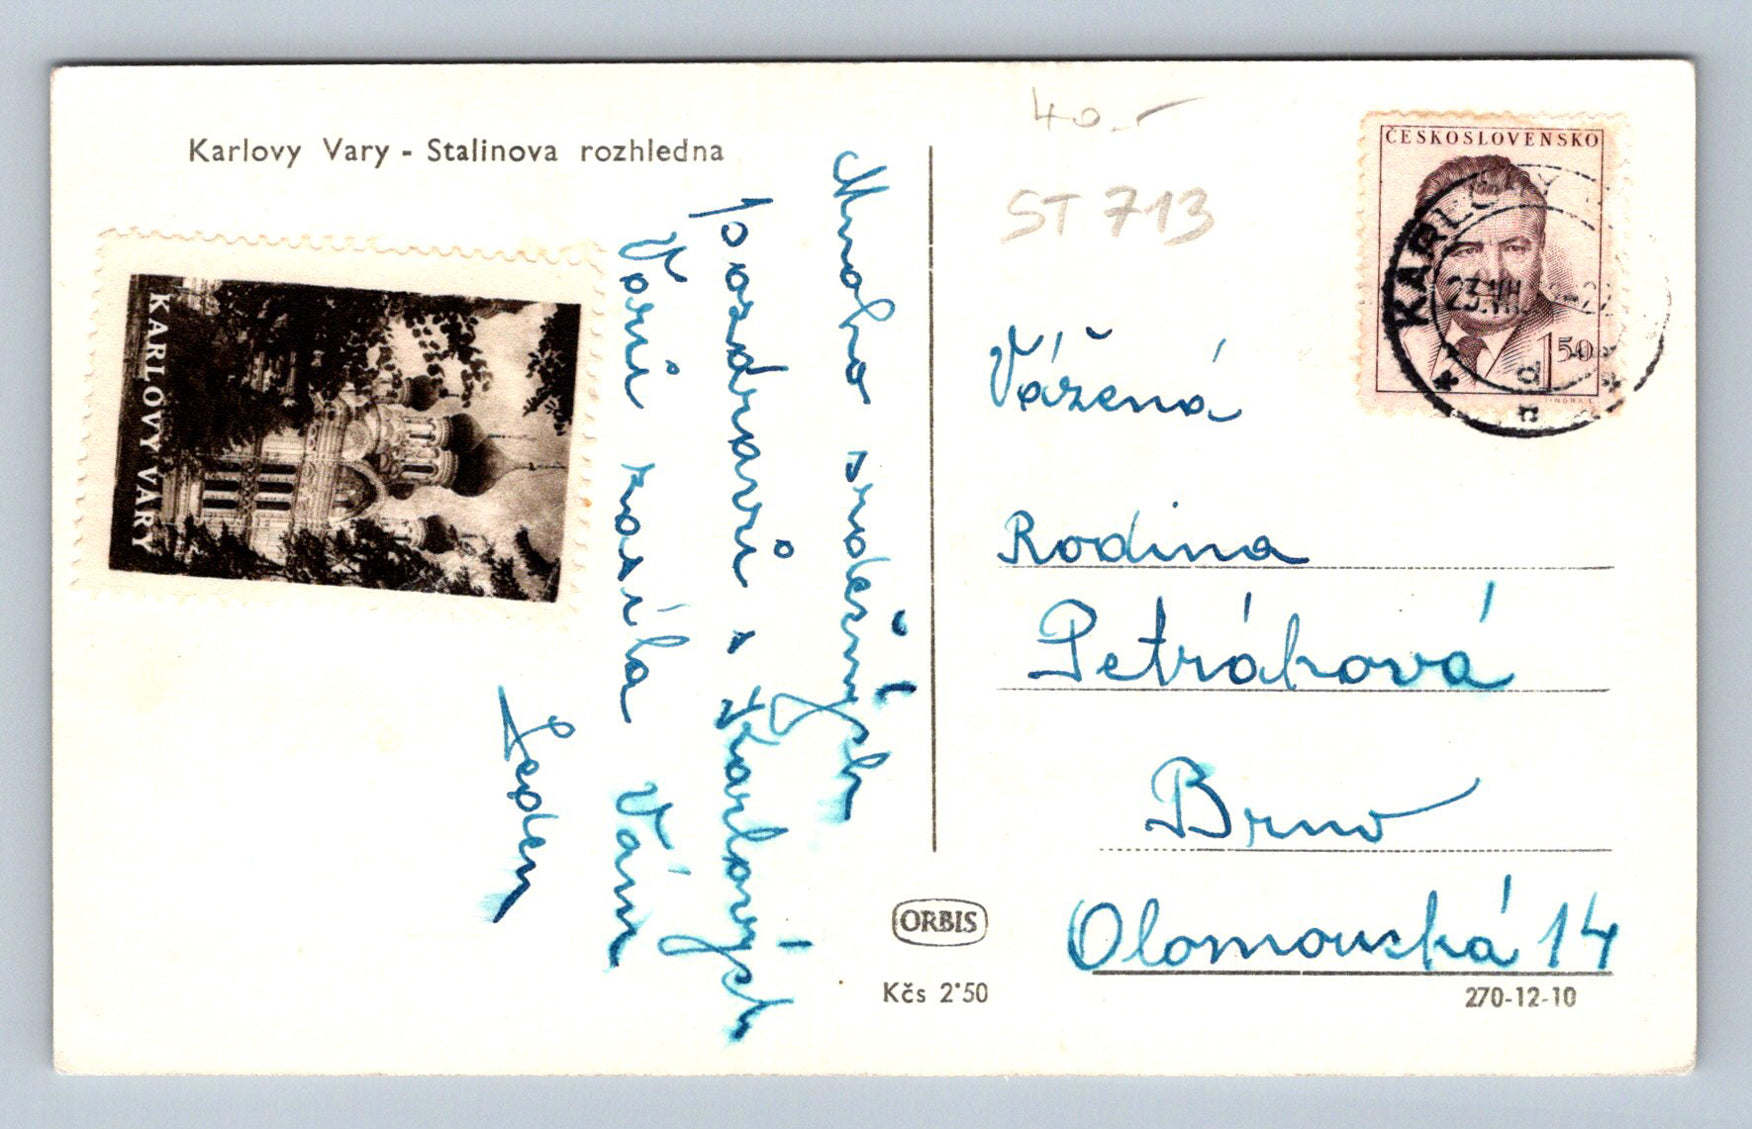 Karlovy Vary - Stalinova rozhledna
KARLOVY VARY
Mnoho srdečných
pozdravů z Karlových
Varů zasílá Vám
40.-
ST 713
ČESKOSLOVENSKO
1.50
KARLOVY
23.VII.
Vážená
Rodina
Petráková
Brno
Olomouská 14
ORBIS
Kčs 2·50
270-12-10